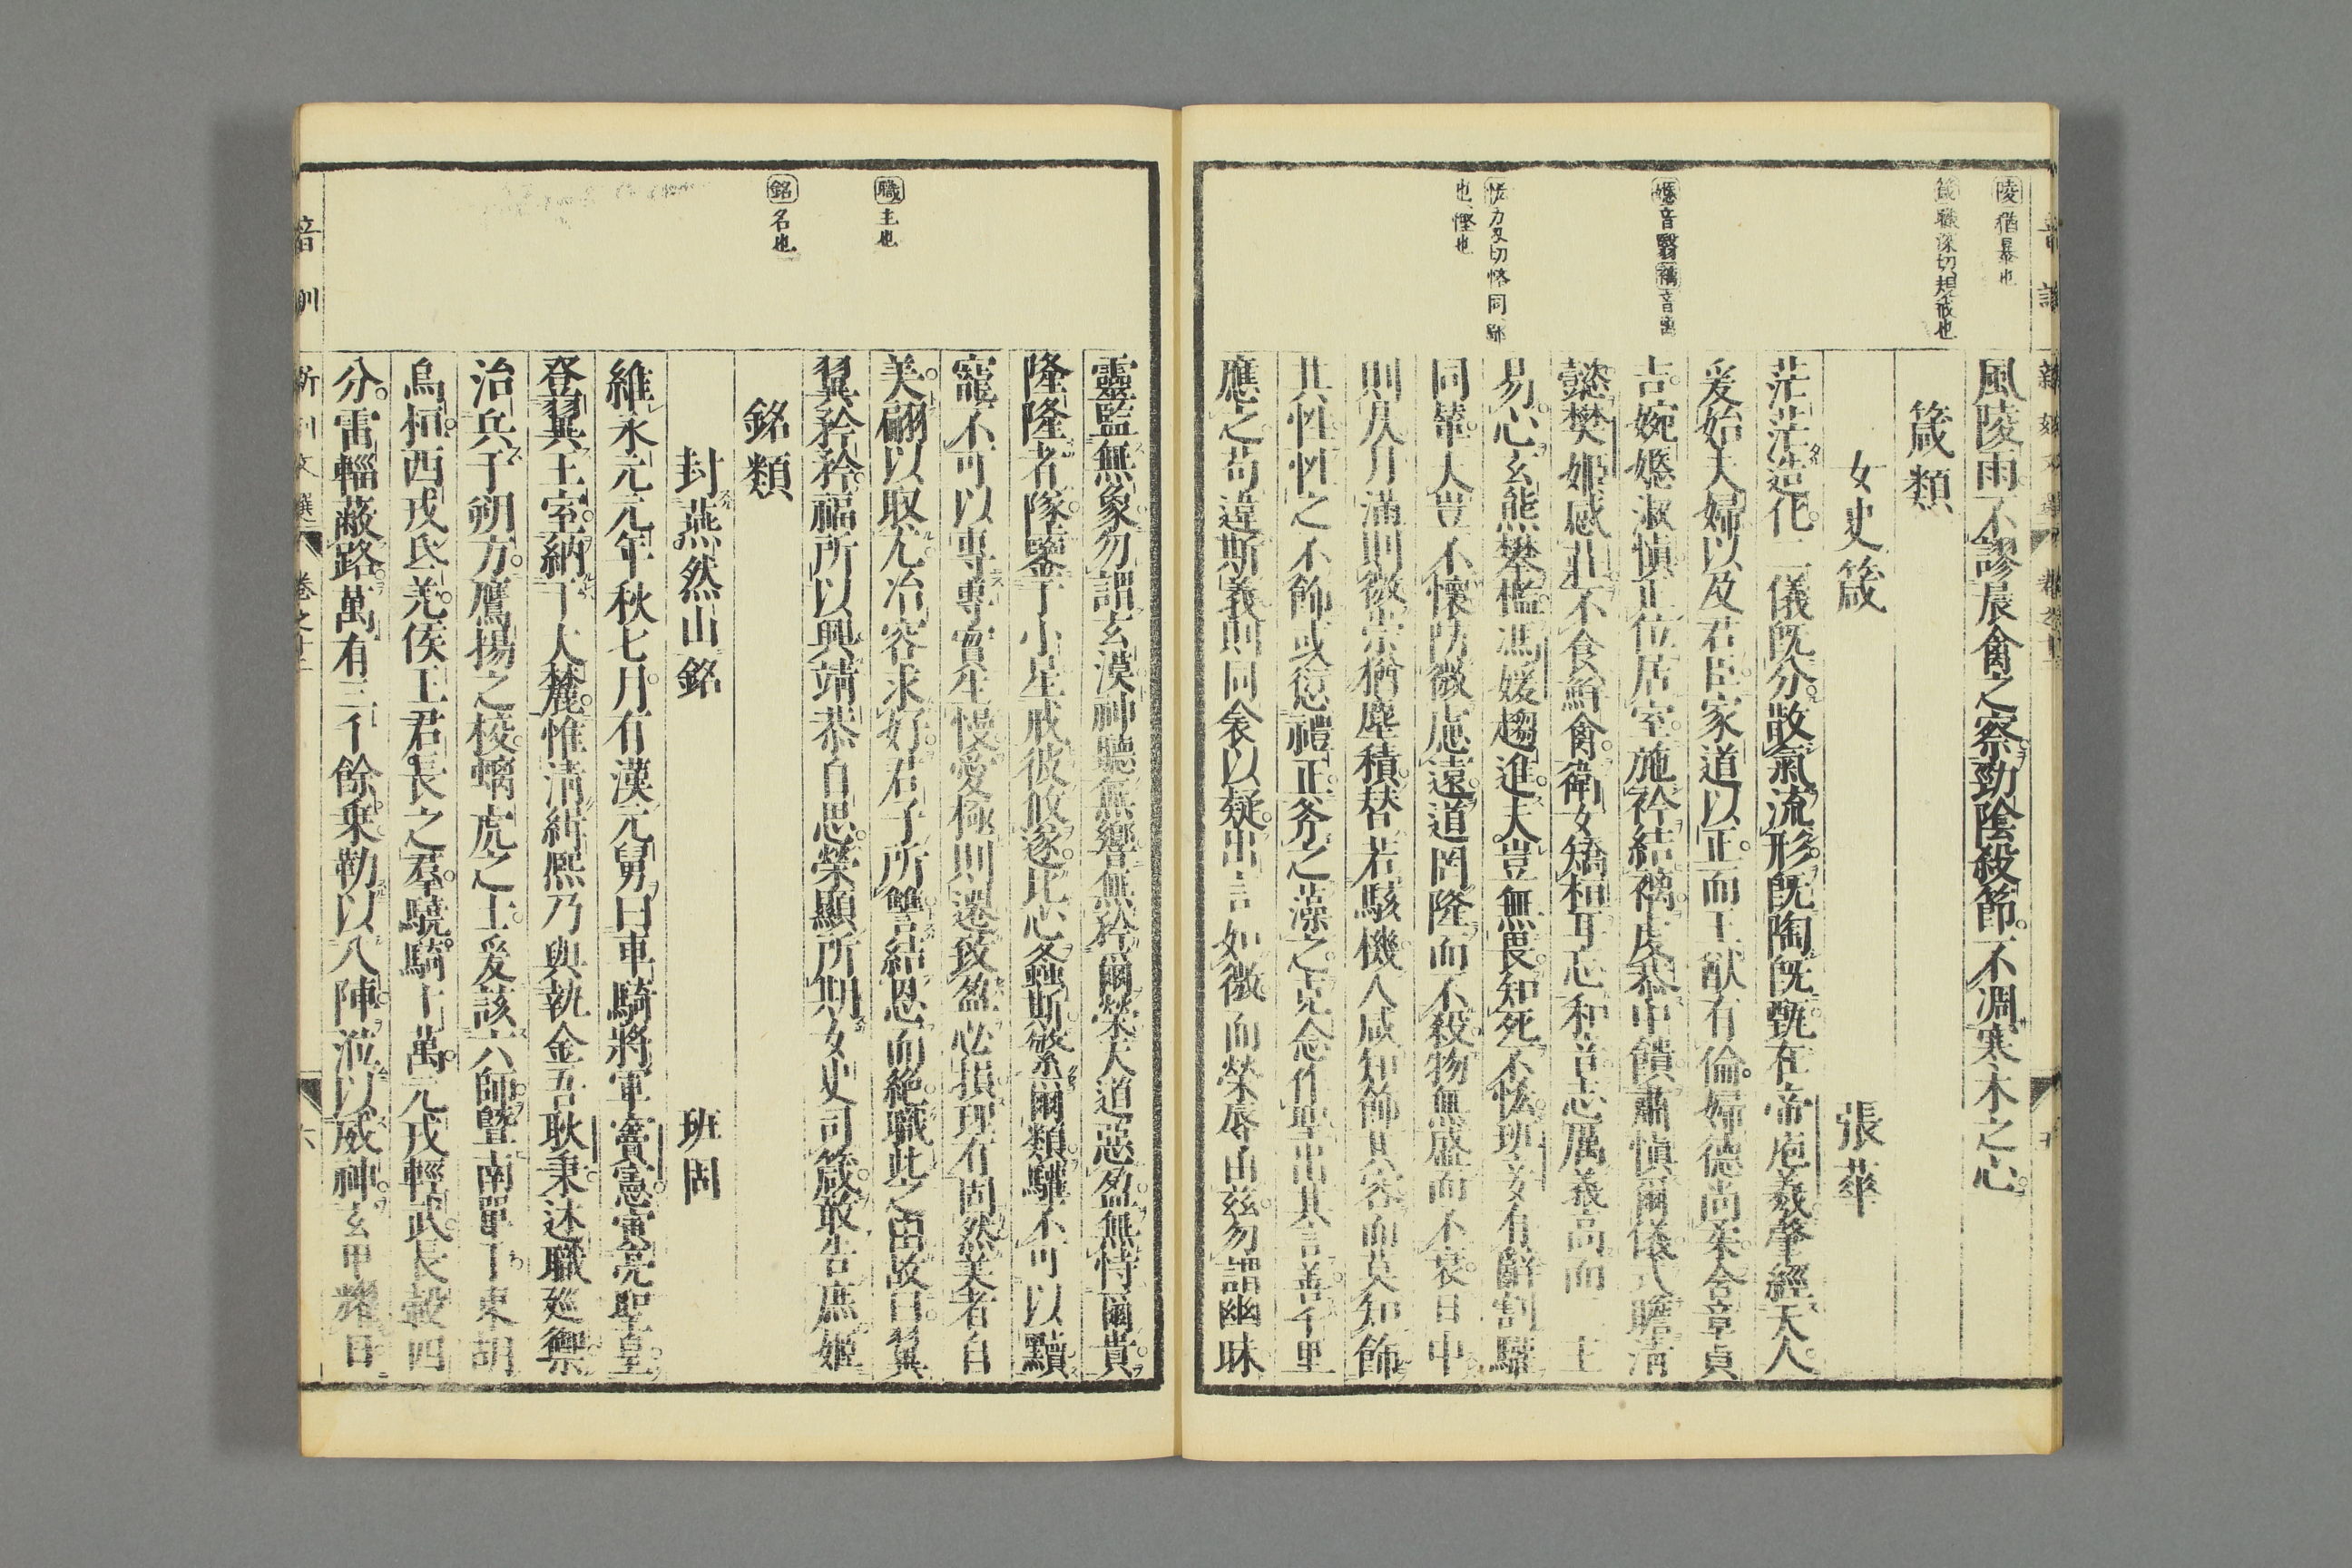 陵猶暴也
箴職深切規戒也
嫕音翳褵音離
恡力刄切悋同鄙
也慳也
風陵雨不謬晨禽之察勁陰殺節不凋寒木之心
箴類
女史箴 張華
茫茫造化二儀旣分散氣流形旣陶旣甄在帝庖羲肇經天人
爰始夫婦以及君臣家道以正而王猷有倫婦德尚柔含章貞
吉婉嫕淑愼正位居室施衿結褵虔恭中饋肅愼爾儀式瞻淸
懿樊姬感莊不食鮮禽衛女矯桓耳忘和音志厲義高而二主
易心玄熊攀檻馮媛趨進夫豈無畏知死不恡班妾有辭割驩
同輦夫豈不懷防微慮遠道罔隆而不殺物無盛而不衰日中
則昃月滿則微崇猶塵積替若駭機人咸知飾其容而莫知飾
其性性之不飾或愆禮正斧之藻之克念作聖出其言善千里
應之苟違斯義則同衾以疑出言如微而榮辱由茲勿謂幽昧
職主也
銘名也
靈監無象勿謂玄漠神聽無響無矜爾榮天道惡盈無恃爾貴
隆隆者墜鑒于小星戒彼攸遂比心螽斯繁爾類驩不可以黷
寵不可以專專實生慢愛極則遷致盈必損理有固然美者自
美翩以取尤冶容求好君子所讐結恩而絕職此之由故曰翼
翼矜矜福所以興靖恭自思榮顯所期女史司箴敢告庶姬
銘類
封燕然山銘 班固
維永元元年秋七月有漢元舅曰車騎將軍竇憲寅亮聖皇
登翼王室納于大麓惟淸緝熙乃與執金吾耿秉述職巡禦
治兵于朔方鷹揚之校螭虎之士爰該六師曁南單于東胡
烏桓西戎氐羌侯王君長之羣驍騎十萬元戎輕武長轂四
分雷輜蔽路萬有三千餘乗勒以八陣涖以威神玄甲耀日
音訓
新刊文選 卷之十二 六